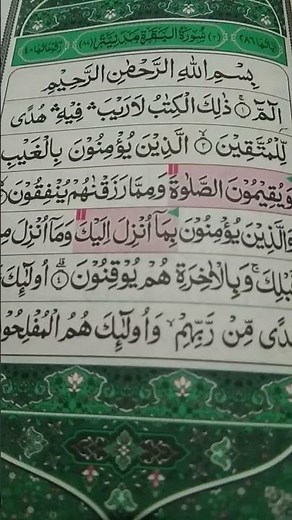 اٰیاتها ٢٨٦ (٢) سُوْرَةُ الْبَقَرَةِ مَدَنِيَّةٌ (٨٧) رکوعاتها ٤٠
بِسْمِ اللهِ الرَّحْمٰنِ الرَّحِيْمِ
الٓمّٓ ۚ﴿١﴾ ذٰلِكَ الْكِتٰبُ لَا رَيْبَ ۛ فِيْهِ ۛ هُدًى
لِّلْمُتَّقِيْنَ ﴿٢﴾ الَّذِيْنَ يُؤْمِنُوْنَ بِالْغَيْبِ
وَيُقِيْمُوْنَ الصَّلٰوةَ وَمِمَّا رَزَقْنٰهُمْ يُنْفِقُوْنَ
وَالَّذِيْنَ يُؤْمِنُوْنَ بِمَآ اُنْزِلَ اِلَيْكَ وَمَآ اُنْزِلَ مِ
قَبْلِكَ ۚ وَبِالْاٰخِرَةِ هُمْ يُوْقِنُوْنَ ﴿٤﴾ اُولٰٓئِكَ
هُدًى مِّنْ رَّبِّهِمْ ۙ وَاُولٰٓئِكَ هُمُ الْمُفْلِحُوْ